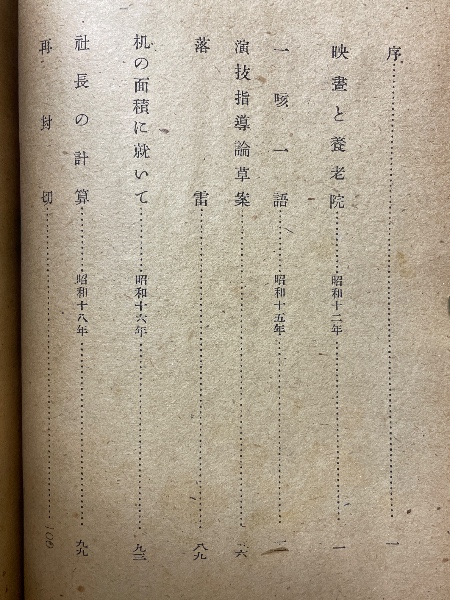 序……一
映畫と養老院……昭和十二年……一
一咳一語……昭和十五年……
演技指導論草案……
落雷……八九
机の面積に就いて……昭和十六年……九三
社長の計算……昭和十八年……九九
再封切……